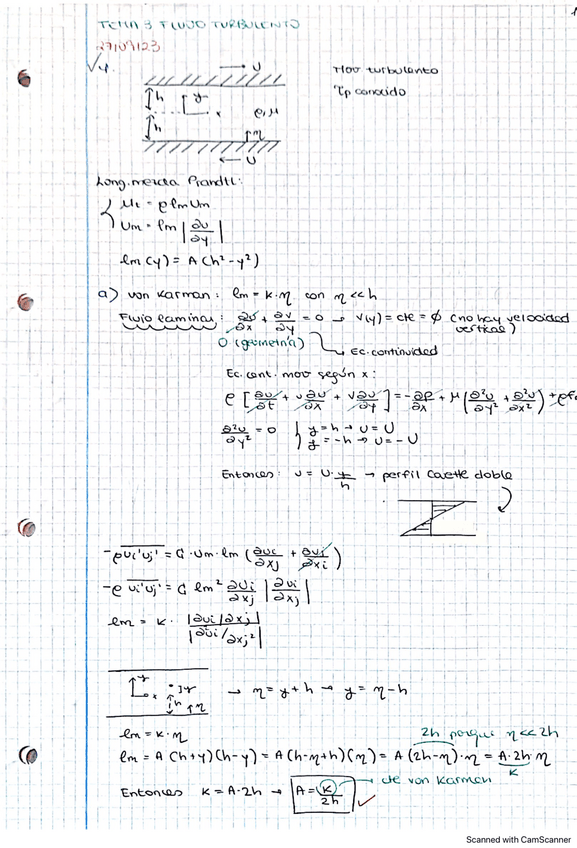 1
TEMA 3 FLUJO TURBULENTO
27/09/23
√4.
→ U
h
y
x
ρ, μ
h
η
← U
Flow turbulento
τp conocido
Long. mezcla Prandtl:
μt = ρ lm Um
Um = lm |∂u/∂y|
lm (y) = A (h² - y²)
a) von Karman: lm = K·η con η << h
Flujo laminar: ∂u/∂x + ∂v/∂y = 0 → v(y) = cte = ∅ (no hay velocidad vertical)
0 (geometría)
Ec. continuidad
Ec. cant. mov según x:
ρ [∂u/∂t + u ∂u/∂x + v ∂u/∂y] = - ∂p/∂x + μ (∂²u/∂y² + ∂²u/∂x²) + ρf
∂²u/∂y² = 0 { y = h → u = U
y = -h → u = -U
Entonces: u = U · y/h → perfil Couette doble
-ρ ui'uj' = C · Um · lm (∂ui/∂xj + ∂uj/∂xi)
-ρ ui'uj' = C lm² ∂ui/∂xj |∂ui/∂xj|
lm = K · |∂ui/∂xj| / |∂ui/∂xj²|
y
x
y
h
η
→ η = y + h → y = η - h
lm = K·η
2h porque η << 2h
lm = A (h+y)(h-y) = A (h-η+h)(η) = A (2h-η)·η = A·2h·η
K
Entonces K = A·2h → A = K/2h → cte von Karman ✓
Scanned with CamScanner